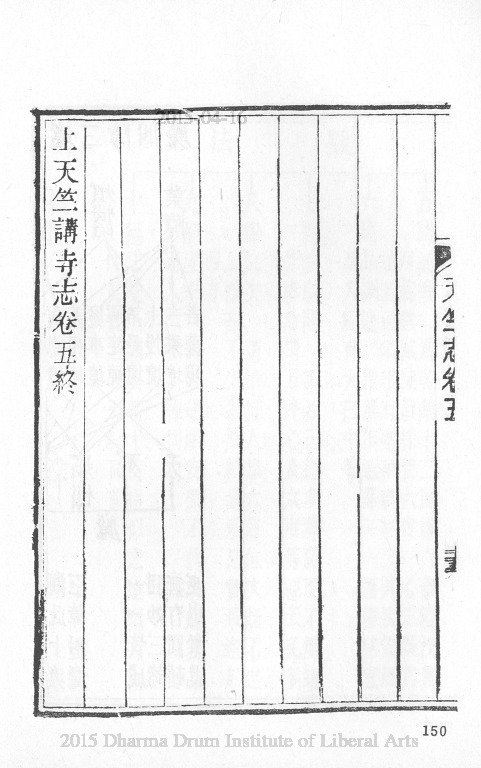 2015-04-16
天竺志卷五
上天竺講寺志卷五終
150
2015 Dharma Drum Institute of Liberal Arts